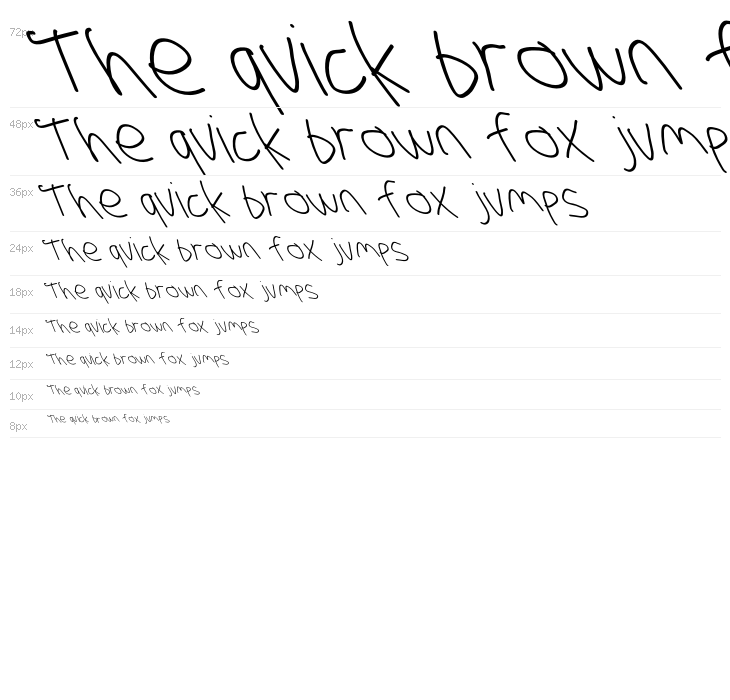 72px The quick brown f
48px The quick brown fox jump
36px The quick brown fox jumps
24px The quick brown fox jumps
18px The quick brown fox jumps
14px The quick brown fox jumps
12px The quick brown fox jumps
10px The quick brown fox jumps
8px The quick brown fox jumps